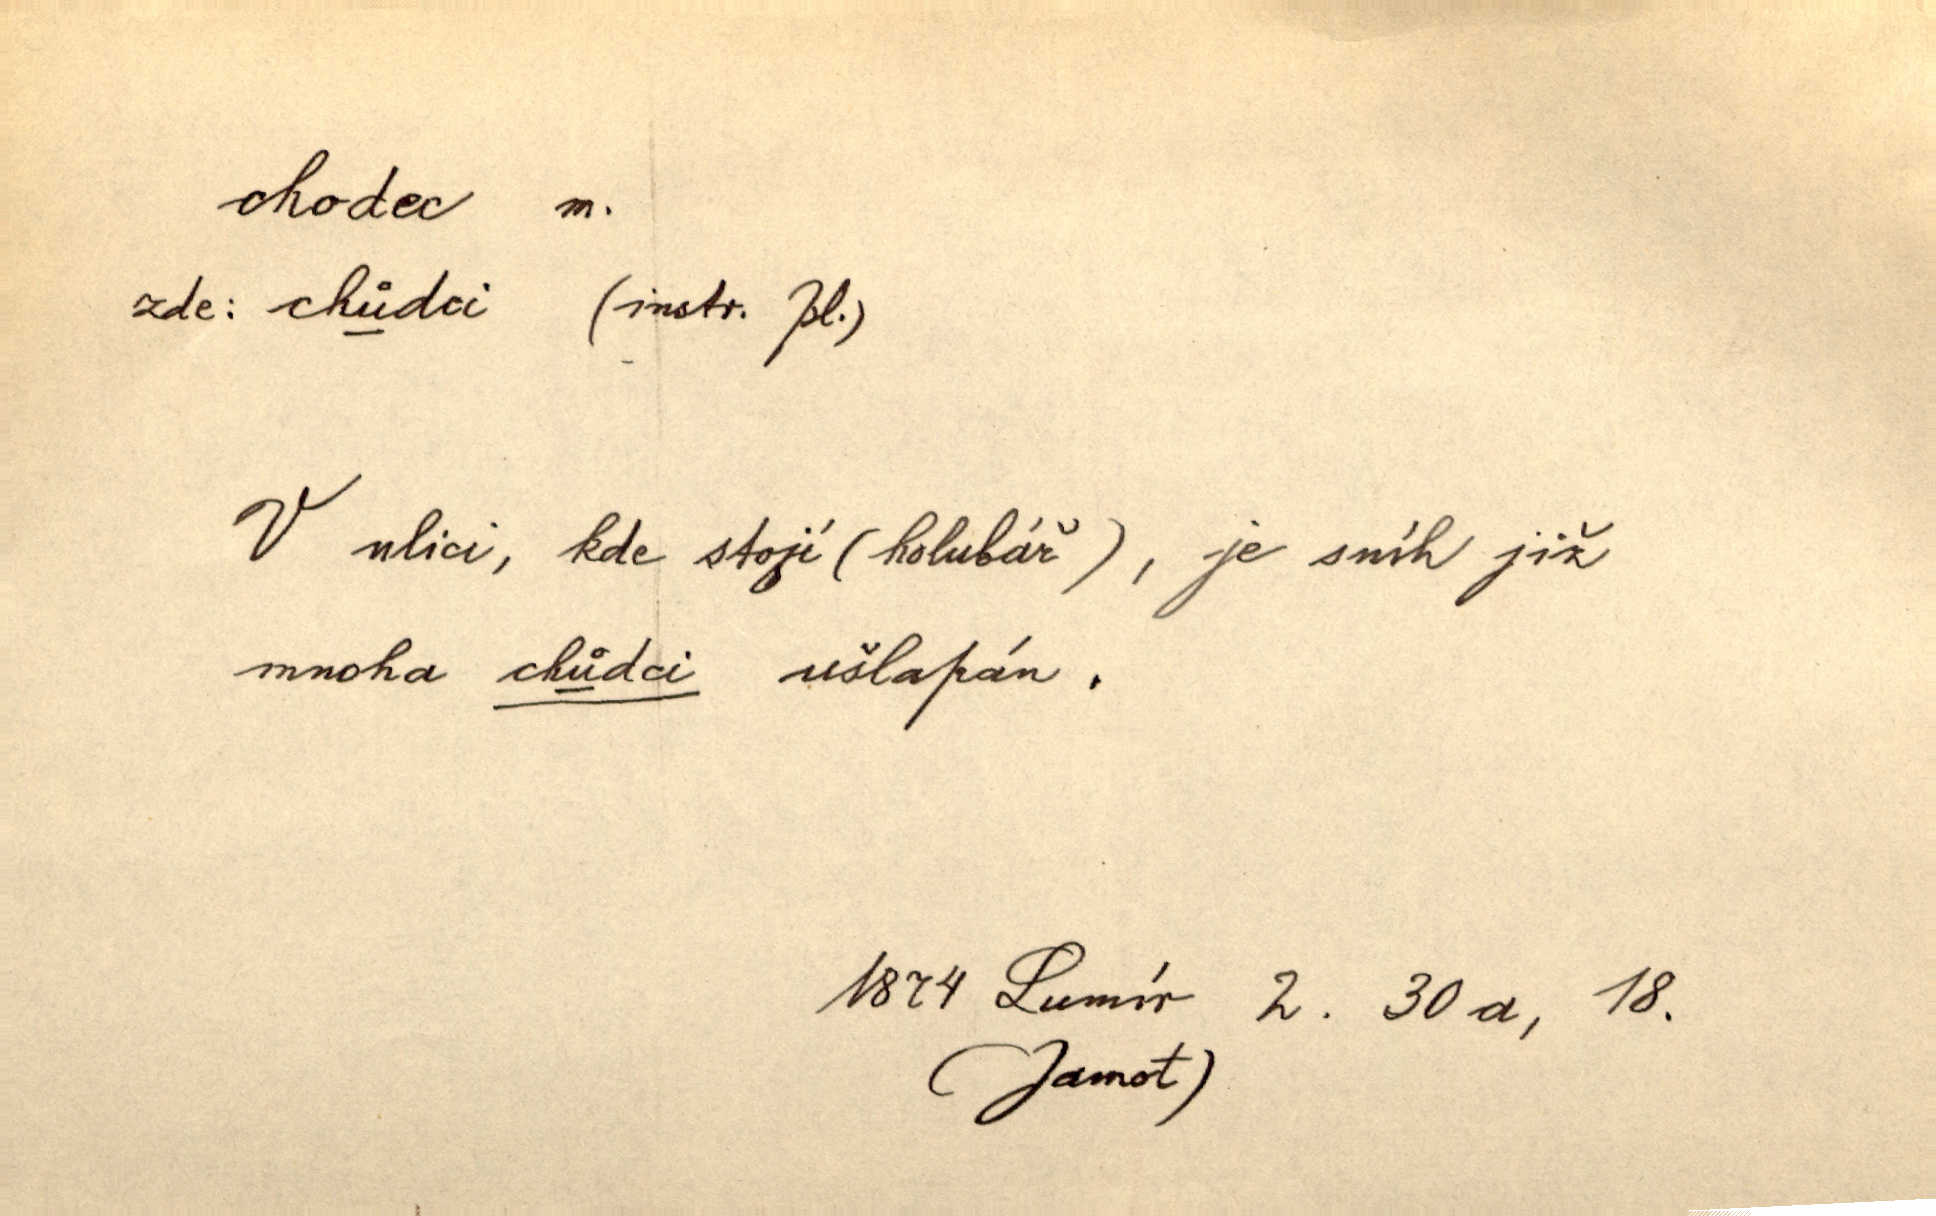 chodec m.
zde: chůdci (instr. pl.)
V ulici, kde stojí (holubář), je sníh již
mnoha chůdci ušlapán.
1874 Lumír 2. 30a, 18.
(Jamot)